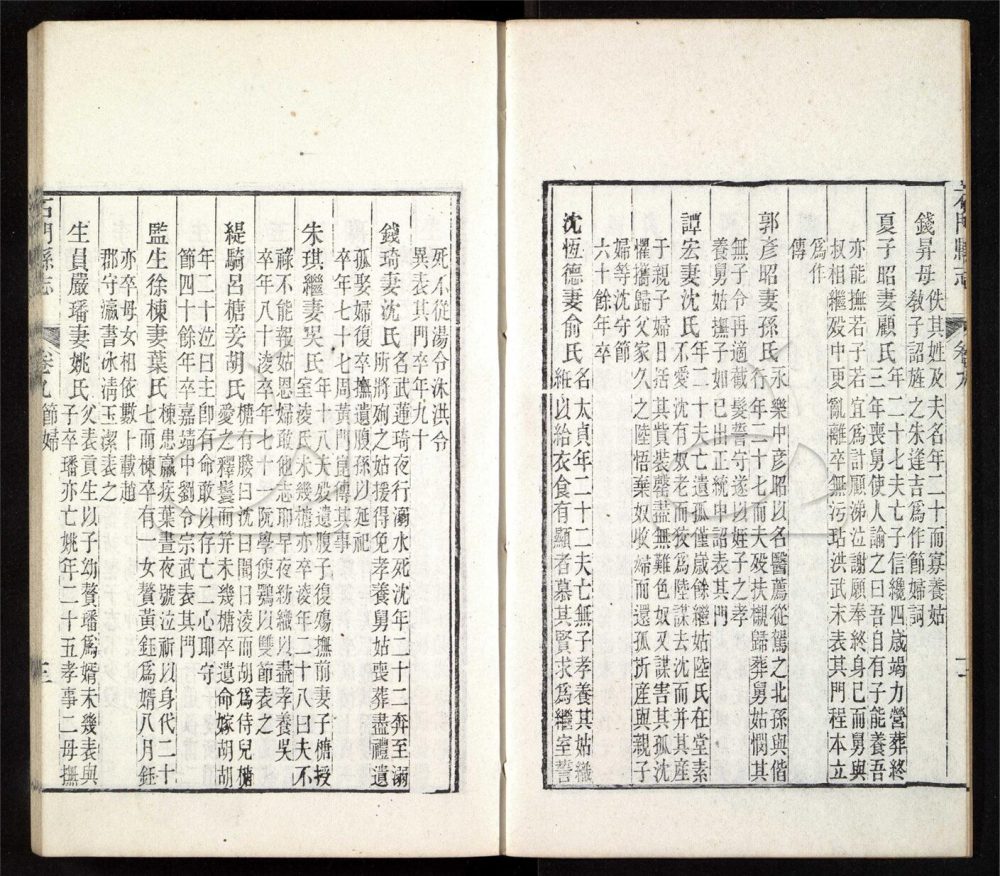 錢昇母 佚其姓及夫名年二十而寡養姑
教子詔旌之朱逢吉爲作節婦詞
夏子昭妻顧氏 年二十七夫亡子信纔四歲竭力營葬終
三年喪舅使人諭之曰吾自有子能養吾
亦能撫若子若宜爲計顧涕泣謝願奉終身已而舅與
叔相繼歿中更亂離卒無污玷洪武末表其門程本立
爲作
傳
郭彥昭妻孫氏 永樂中彥昭以名醫薦從駕之北孫與偕
行年二十七而夫歿扶櫬歸葬舅姑憫其
無子令再適截髮誓守遂以姪子之孝
養舅姑撫子如已出正統中詔表其門
譚宏妻沈氏 年二十六夫亡遺孤僅歲餘繼姑陸氏在堂素
不愛沈有奴老而狡爲陸謀去沈而并其產
于親子婦日括其貲裝罄盡無難色奴又謀害其孤沈
懼攜歸父家久之陸悟棄奴收婦而還孤析產與親子
婦等沈守節
六十餘年卒
沈恆德妻俞氏 名太貞年二十二夫亡無子孝養其姑織
紙以給衣食有顯者慕其賢求爲繼室誓
死不從湯令沐洪令
異表其門卒年九十
錢琦妻沈氏 名武蓮琦夜行溺水死沈年二十二奔至溺
所將殉之姑援得免孝養舅姑喪葬盡禮遺
孤娶婦復卒撫遺腹孫以延祀
卒年七十七周黃門崑傳其事
朱琪繼妻吳氏 年十八夫歿遺腹子復殤撫前妻子櫹授
室淩氏未幾櫹亦卒淩年二十八曰夫不
祿不能報姑恩婦敢他志耶早夜紡織以盡孝養吳
卒年八十淩卒年七十一阮學使鶚以雙節表之
緹騎呂榶妾胡氏 榶有媵曰沈曰閻曰淩而胡爲侍兒榶
愛之釋鬟而笄未幾榶卒遺命嫁胡胡
年二十泣曰主卽有命敢以存亡二心耶守
節四十餘年卒嘉靖中劉令宗武表其門
監生徐棟妻葉氏 棟患羸疾葉晝夜號泣祈以身代二十
七而棟卒有一女贅黃鈺爲婿八月鈺
亦卒母女相依數十載趙
郡守瀛書冰清玉潔表之
生員嚴璠妻姚氏 父表貢生以子幼贅璠爲婿未幾表與
子卒璠亦亡姚年二十五孝事二母撫
石門縣志 卷九 節婦